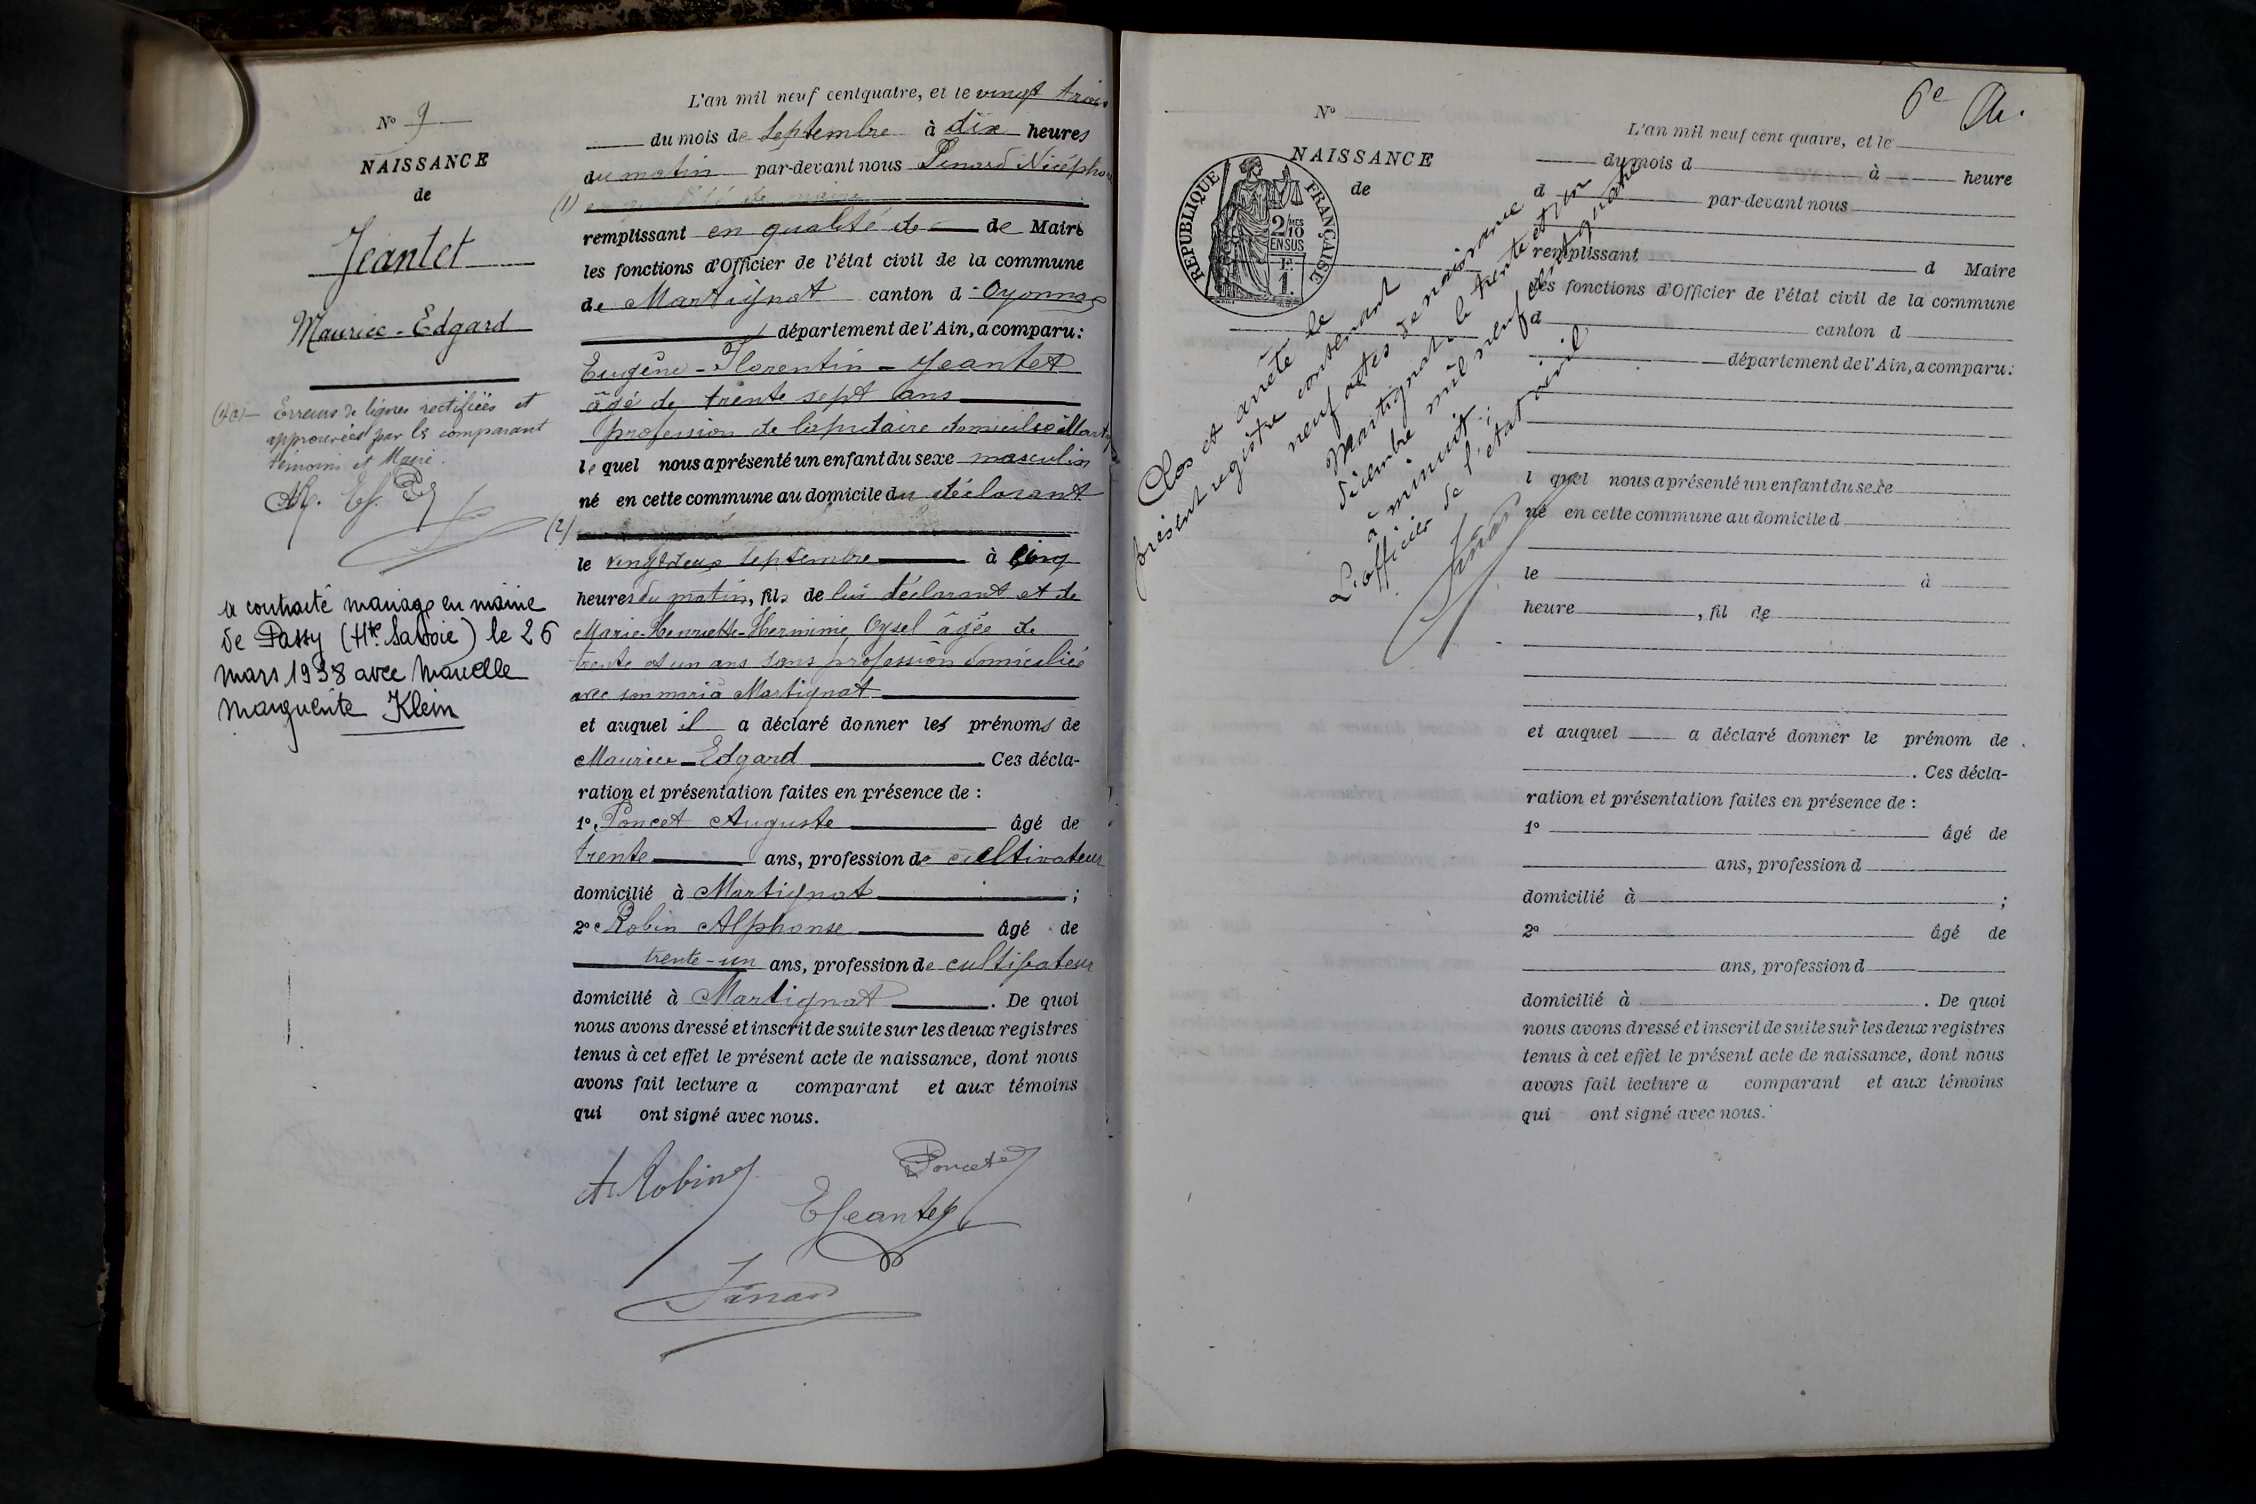 N° 9
NAISSANCE
de
Jeantet
Maurice-Edgard
Erreurs de lignes rectifiées et
approuvées par le comparant
témoins et Maire.
a contracté mariage en mairie
de Passy (Hte Savoie) le 26
mars 1938 avec Marcelle
Marguerite Klein
L'an mil neuf cent quatre, et le vingt trois
du mois de Septembre à dix heures
du matin par-devant nous Pinard Nicéphore
(1) en qualité de maire
remplissant en qualité de de Maire
les fonctions d'Officier de l'état civil de la commune
de Martignat canton d'Oyonnax
département de l'Ain, a comparu:
Eugène-Florentin-Jeantet
âgé de trente sept ans
profession de lapidaire domicilié à Martignat
lequel nous a présenté un enfant du sexe masculin
né en cette commune au domicile du déclarant
(2)
le vingt deux septembre à cinq
heures du matin, fils de lui déclarant et de
Marie-Henriette-Herminie Oysel âgée de
trente et un ans sans profession domiciliée
avec son mari à Martignat
et auquel il a déclaré donner les prénoms de
Maurice-Edgard Ces décla-
ration et présentation faites en présence de :
1° Poncet Auguste âgé de
trente ans, profession de cultivateur
domicilié à Martignat ;
2° Robin Alphonse âgé de
trente-un ans, profession de cultivateur
domicilié à Martignat . De quoi
nous avons dressé et inscrit de suite sur les deux registres
tenus à cet effet le présent acte de naissance, dont nous
avons fait lecture a comparant et aux témoins
qui ont signé avec nous.
A. Robin Poncet
E Jeantet
Pinard
6e
N°
NAISSANCE
de
RÉPUBLIQUE FRANÇAISE
2/10 MES
EN SUS
1F.
Clos et arrêté le
présent registre contenant
neuf actes de naissance
Martignat le trente et un
décembre mil neuf cent quatre
à minuit.
L'officier de l'état civil
Pinard
L'an mil neuf cent quatre, et le
du mois d à heure
d par-devant nous
remplissant d Maire
les fonctions d'Officier de l'état civil de la commune
d canton d
département de l'Ain, a comparu:
l quel nous a présenté un enfant du sexe
né en cette commune au domicile d
le à
heure , fil de
et auquel a déclaré donner le prénom de
. Ces décla-
ration et présentation faites en présence de :
1° âgé de
ans, profession d
domicilié à ;
2° âgé de
ans, profession d
domicilié à . De quoi
nous avons dressé et inscrit de suite sur les deux registres
tenus à cet effet le présent acte de naissance, dont nous
avons fait lecture a comparant et aux témoins
qui ont signé avec nous.